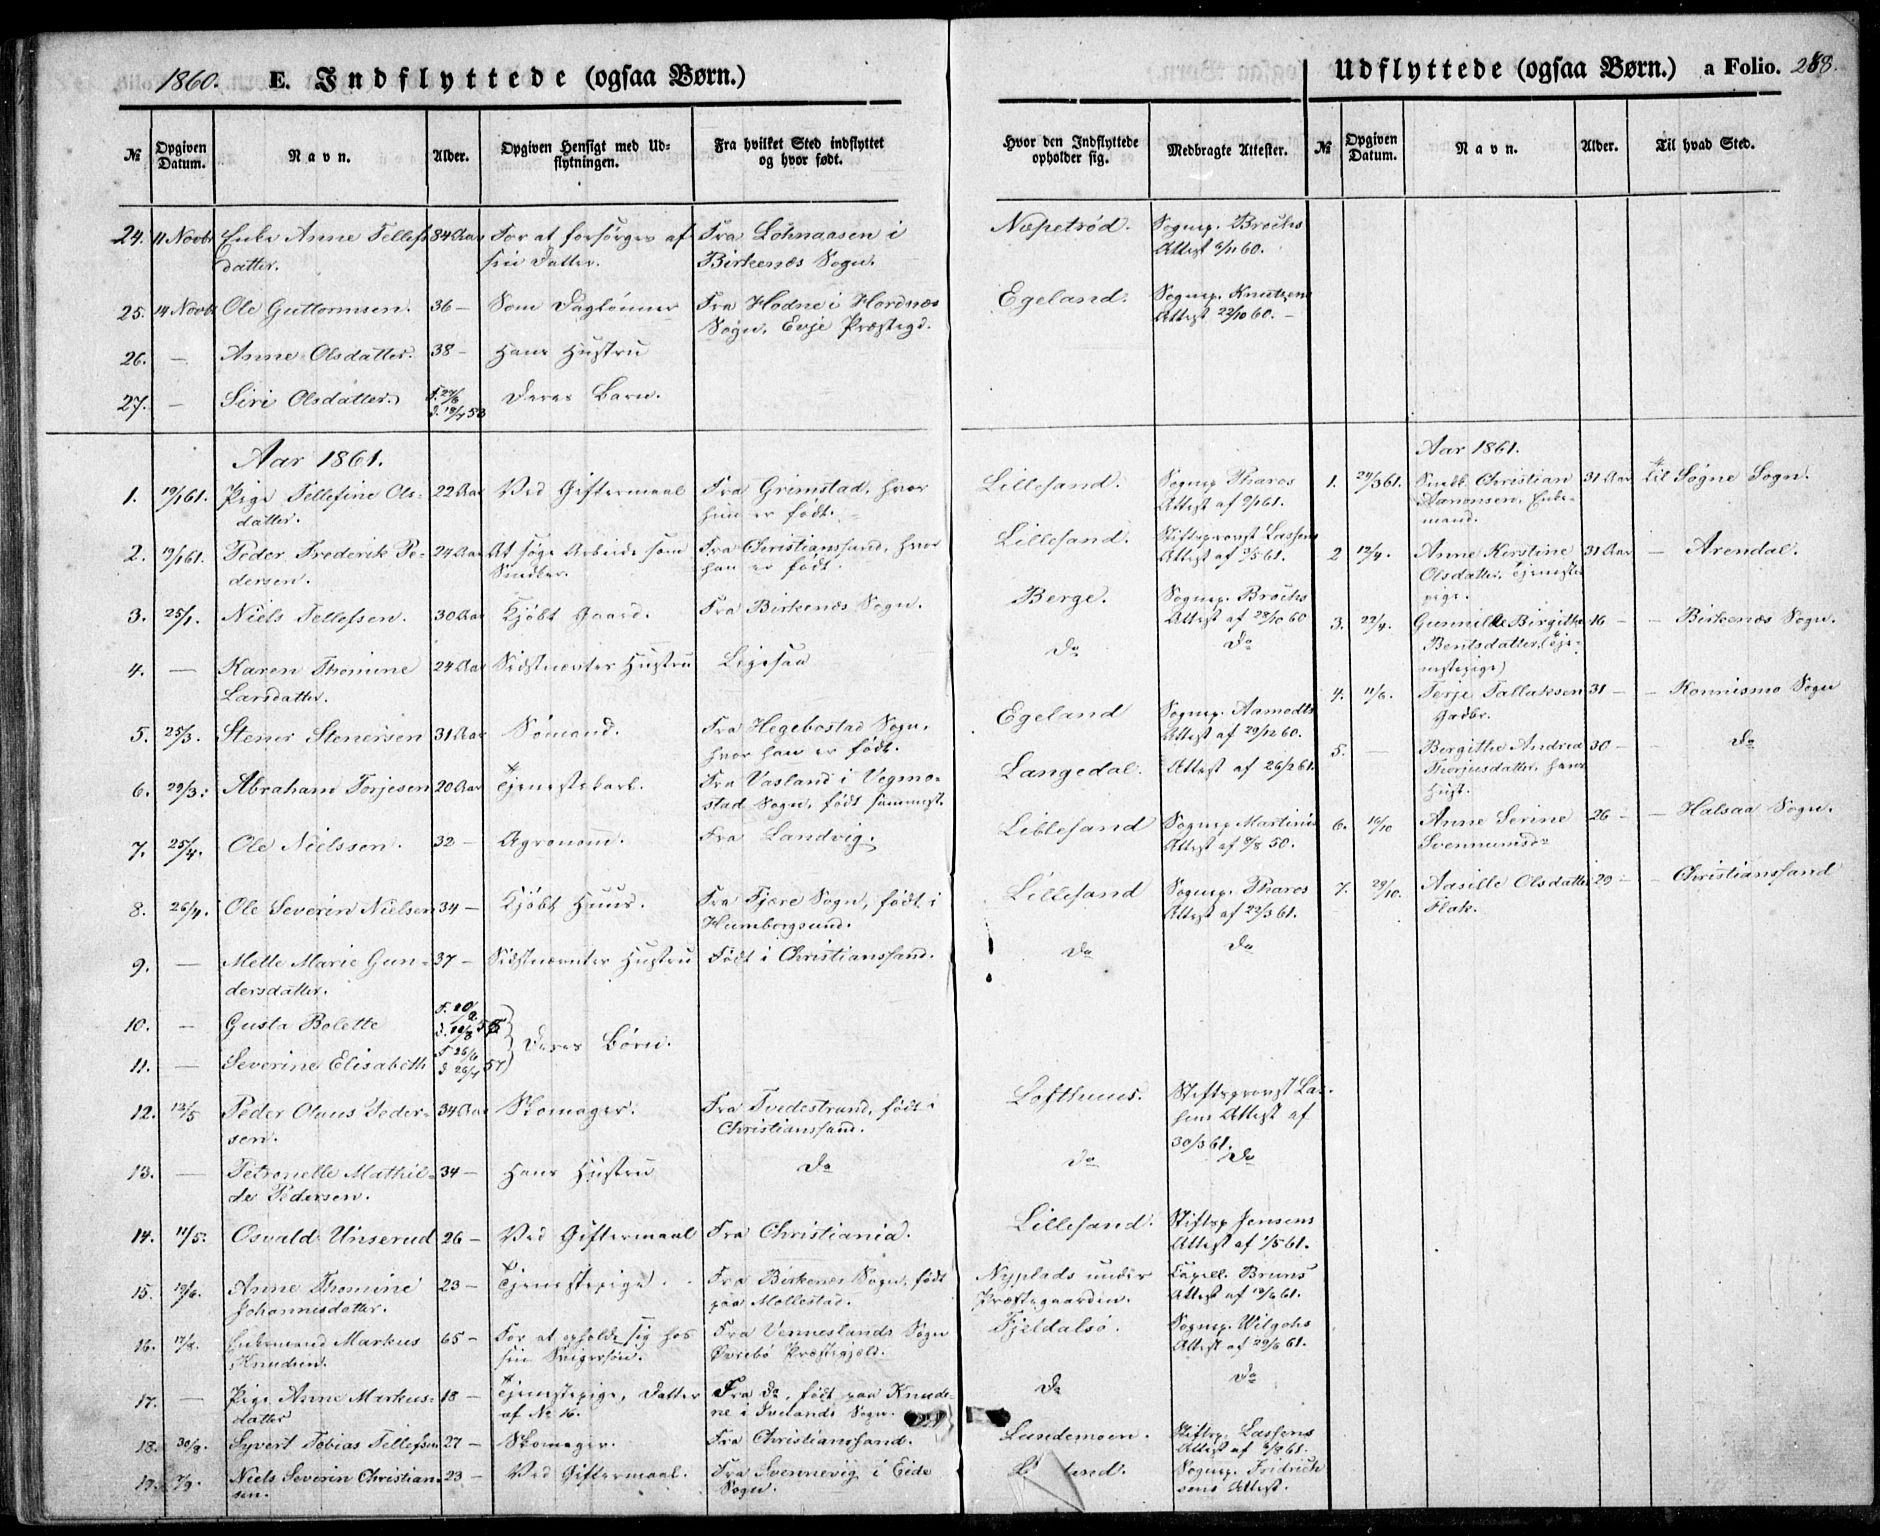 1860. E. Indflyttede (ogsaa Børn.)
№ Opgiven Datum. Navn. Alder. Opgiven Hensigt med Udflytningen. Fra hvilket Sted indflyttet og hvor født.
24. 11 Novbr Enke Anne Tellefs 84 Aar For at forsørges af Fra Lohnaasen i
datter. sin Datter. Birkenæs Sogn.
25. 14 Novbr Ole Guttormsen. 36 — Som Daglønner Fra Hodne i Hordnes
Sogn, Evje Præstegd.
26. — Anne Olsdatter. 38 — Hans Hustru
27. — Siri Olsdatter. Deres Barn.
Aar 1861.
1. 19/1 61. Pige Tellefine Ols- 22 Aar Ved Giftermaal Fra Grimstad, hvor
datter. hun er født.
2. 19/1 61. Peder Frederik Pe- 24 Aar At søge Arbeide som Fra Christianssand, hvor
dersen. Snedker. han er født.
3. 25/1. Niels Tellefsen. 30 Aar Kjøbt Gaard. Fra Birkenæs Sogn.
4. — Karen Thomine 24 Aar Sidstnævntes Hustru Ligesaa
Larsdatter.
5. 25/3. Stener Stenersen 31 Aar Sømand. Fra Hegebostad Sogn,
hvor han er født.
6. 29/3. Abraham Torjesen 20 Aar Tjenestekarl. Fra Vasland i Vegmo-
stad Sogn, født sammest.
7. 25/4. Ole Nielssen. 32 — Agronom. Fra Landvig.
8. 26/4. Ole Severin Nielsen 34 — Kjøbt Huus. Fra Fjære Sogn, født i
Humborgsund.
9. — Mette Marie Gun- 37 — Sidstnævntes Hustru Født i Christianssand.
dersdatter.
10. — Gusta Bolette
Deres Børn.
11. — Severine Elisabeth F 26/1 D 26/4 57
12. 12/5 Peder Olaus Peder- 34 Aar Skomager. Fra Tvedestrand, født i
sen. Christianssand.
13. — Petronelle Mathil- 34 — Hans Hustru Do
de Pedersen.
14. 11/5. Osvald Unserud 26 — Ved Giftermaal Fra Christiania.
15. 19/6. Anne Thomine 23 — Tjenestepige. Fra Birkenæs Sogn, født
Johannisdatter. paa Mollestad.
16. Enkemand Markus 65 — For at opholde sig hos Fra Vennesland Sogn
Knudsen. sin Svigersøn. Øvrebø Præstegjeld.
17. — Pige Anne Markus- 18 — Tjenestepige, Datter Fra Do, født paa Knude-
datter af No 16. ne i Iveland Sogn.
18. 30/8. Syvert Tobias Tellefsen 27 — Skomager. Fra Christianssand.
19. 7/9. Niels Severin Christian- 23 — Ved Giftermaal. Fra Svennevig i Eide
sen. Sogn.
Udflyttede (ogsaa Børn.) a Folio. 288.
Hvor den Indflyttede opholder sig. Medbragte Attester. № Opgiven Datum. Navn. Alder. Til hvad Sted.
Næpetrød. Sognep. Brochs
Attest 6/11 60.
Egeland. Sognep. Knutzens
Attest 22/10 60. —
Aar 1861.
Lillesand. Sognep Thares 1. 29/3 61. Snedk. Christian 31 Aar til Søgne Sogn.
Attest af 9/1 61. Aanonsen, Enke-
mand.
Lillesand. Stiftsprovst Lassens
Attest af 9/5 61. 2 12/4. Anne Kirstine 31 Aar — Arendal.
Olsdatter, Tjeneste
pige.
Berge. Sognep. Brochs
Attest af 28/10 60 3. 22/4. Gunnilde Birgithe 16 — — Birkenæs Sogn.
Do Do Bentsdatter (Tje-
nestepige)
4. 11/6. Terje Tallaksen 31 — — Konnismo Sogn
Egeland Sognep. Aamodts Gadbr.
Attest af 29/12 60. 5. — Bergithe Andrea 30 — — Do
Langedal. Attest af 26/2 61. Thorjusdatter, hans
Hust.
Lillesand Sognep Martinis 6. 16/10 Anne Serine 26 — — Halsaa Sogn.
Attest af 9/8 50. Svennumsdr
Lillesand Sognep. Thares 7. 29/10. Aasille Olsdatter 29 — — Christianssand
Attest af 22/3 61. Flak.
Do Do
Lofthuus. Stiftsprovst Las-
sens Attest af
30/3 61.
Do Do
Lillesand. Stiftsp Jensens
Attest af 1/5 61.
Nyplads under Capell. Bruns
Præstegaarden. Attest af 19/6 61.
Fjeldalsø. Sognep. Wilgohs
Attest af 29/6 61.
Do Do
Lasedemoen. Stiftsp. Lassens
Attest af 9/8 61.
Sognep. Fridrich
sens Attest.